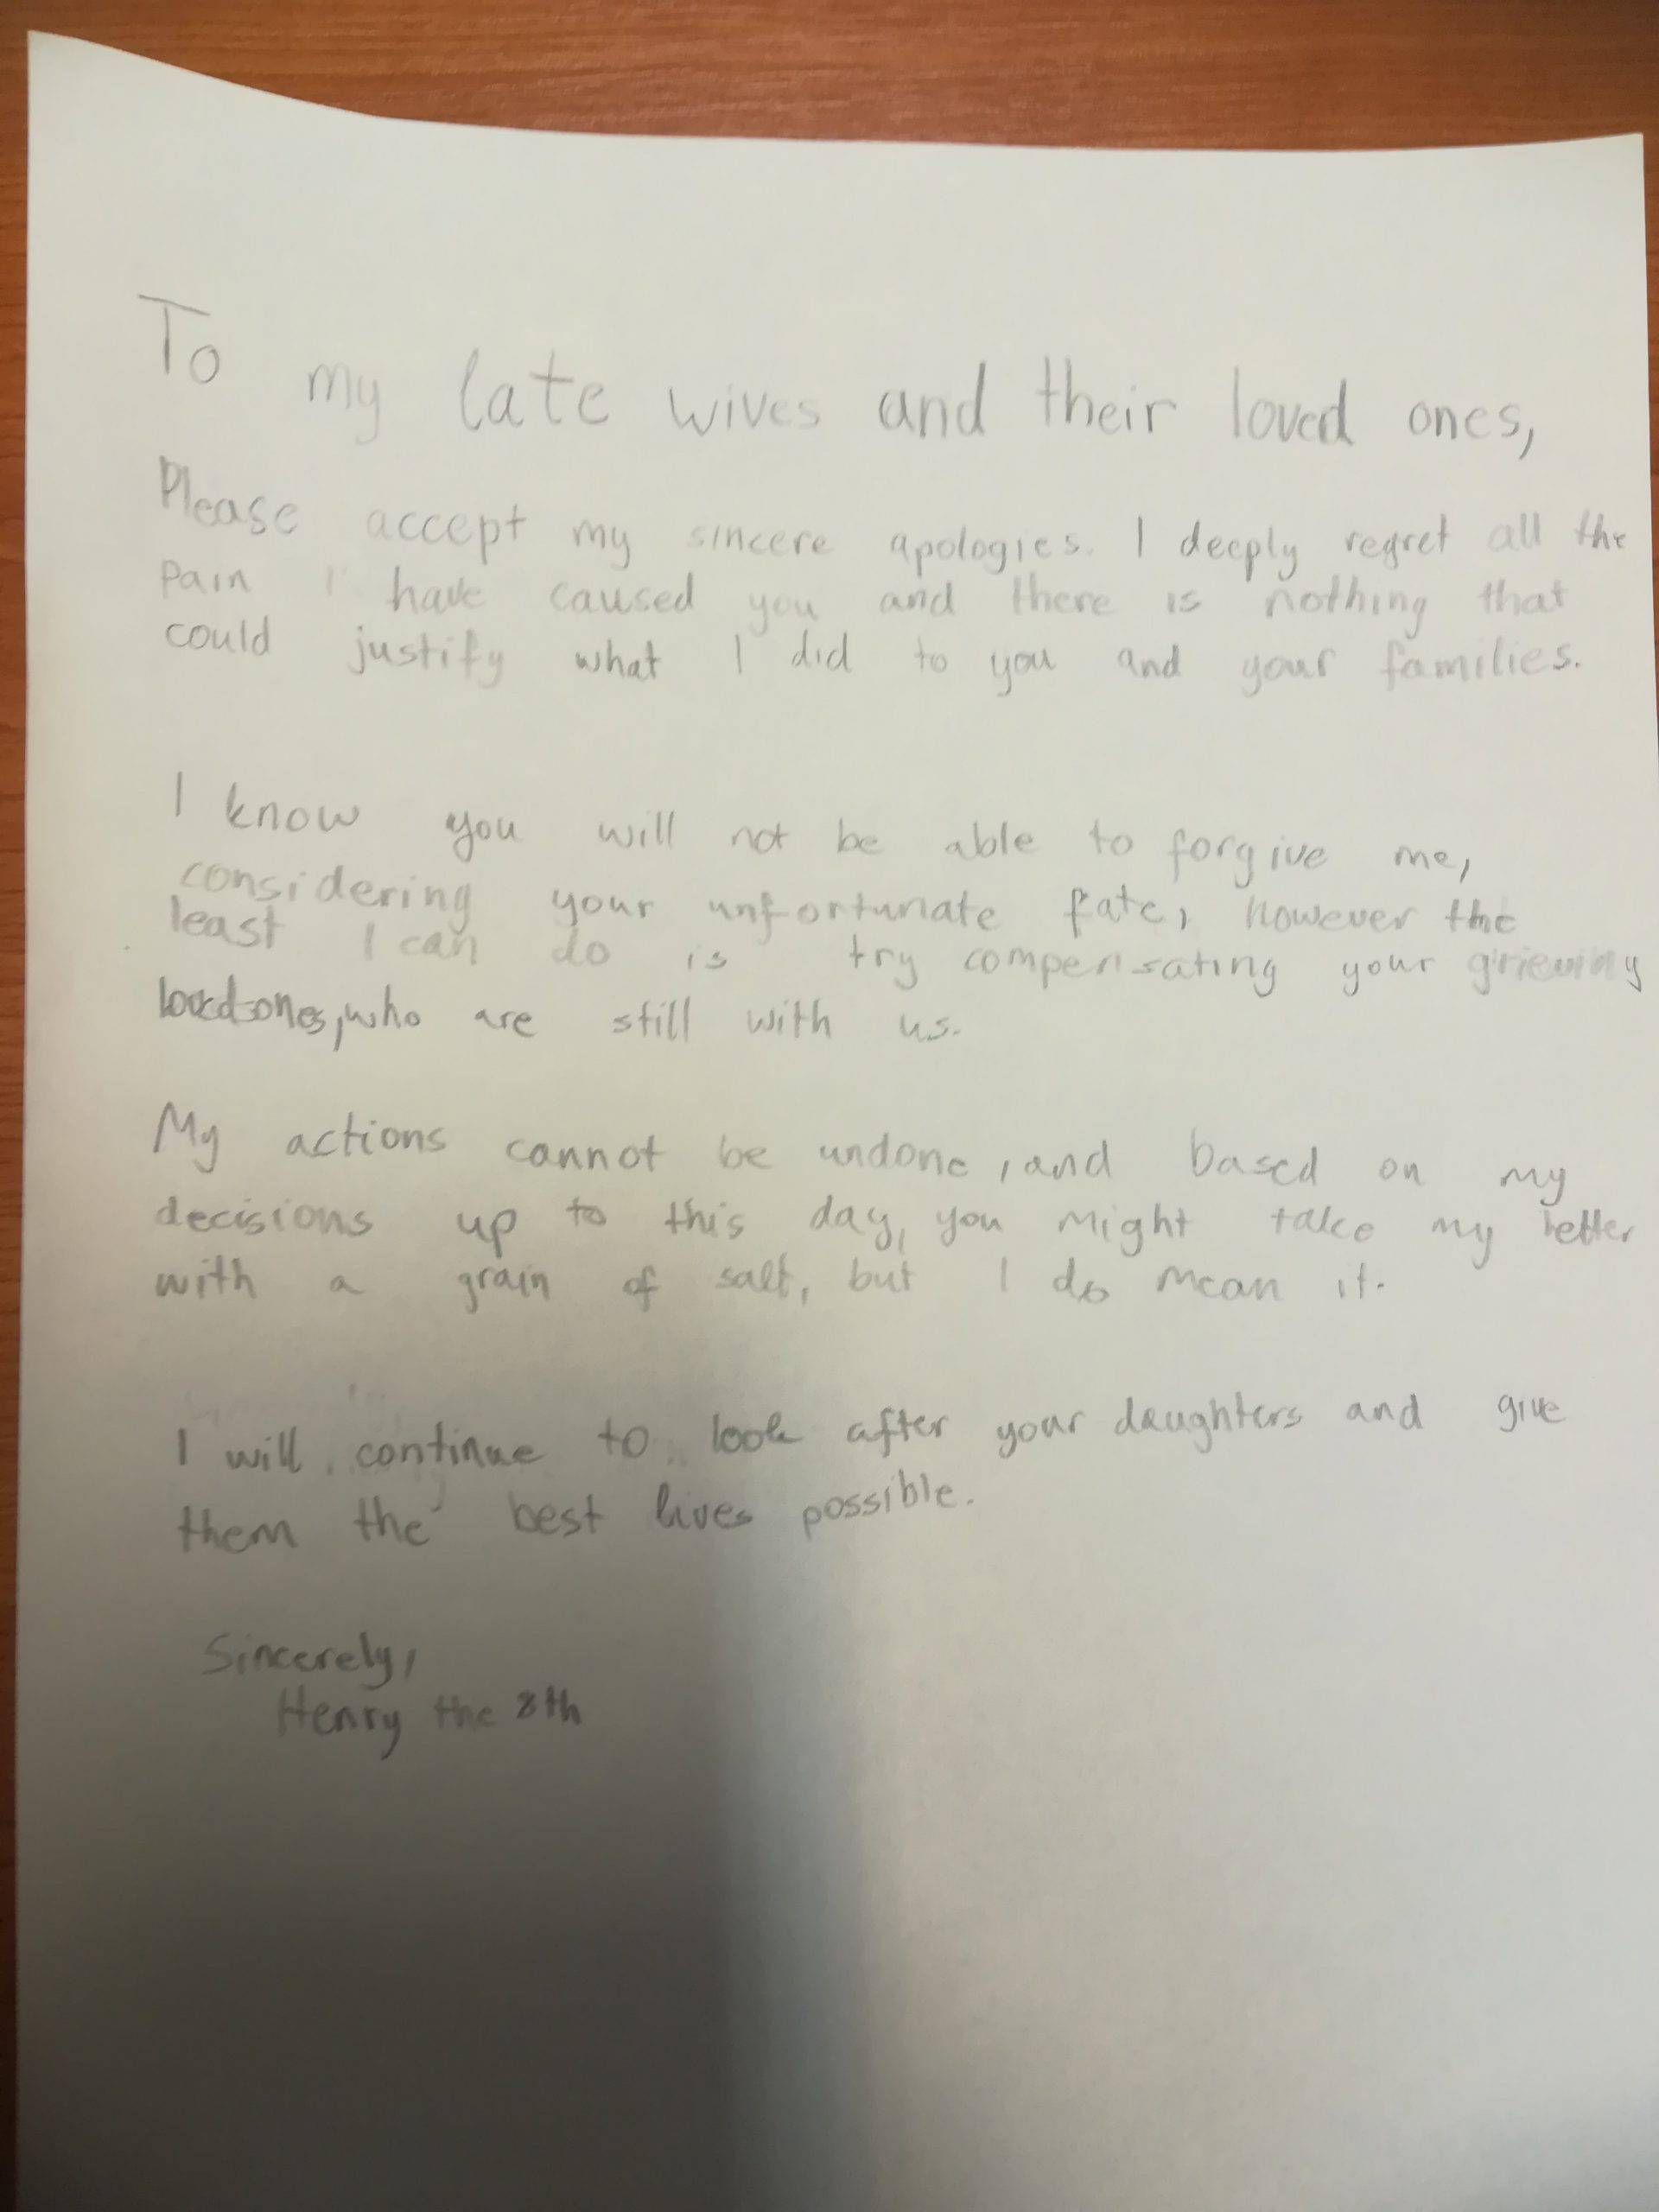 To my late wives and their loved ones,
Please accept my sincere apologies. I deeply regret all the
pain I have caused you and there is nothing that
could justify what I did to you and your families.
I know you will not be able to forgive me,
considering your unfortunate fate, however the
least I can do is try compensating your grieving
loved ones, who are still with us.
My actions cannot be undone, and based on my
decisions up to this day, you might take my letter
with a grain of salt, but I do mean it.
I will continue to look after your daughters and give
them the best lives possible.
Sincerely,
Henry the 8th